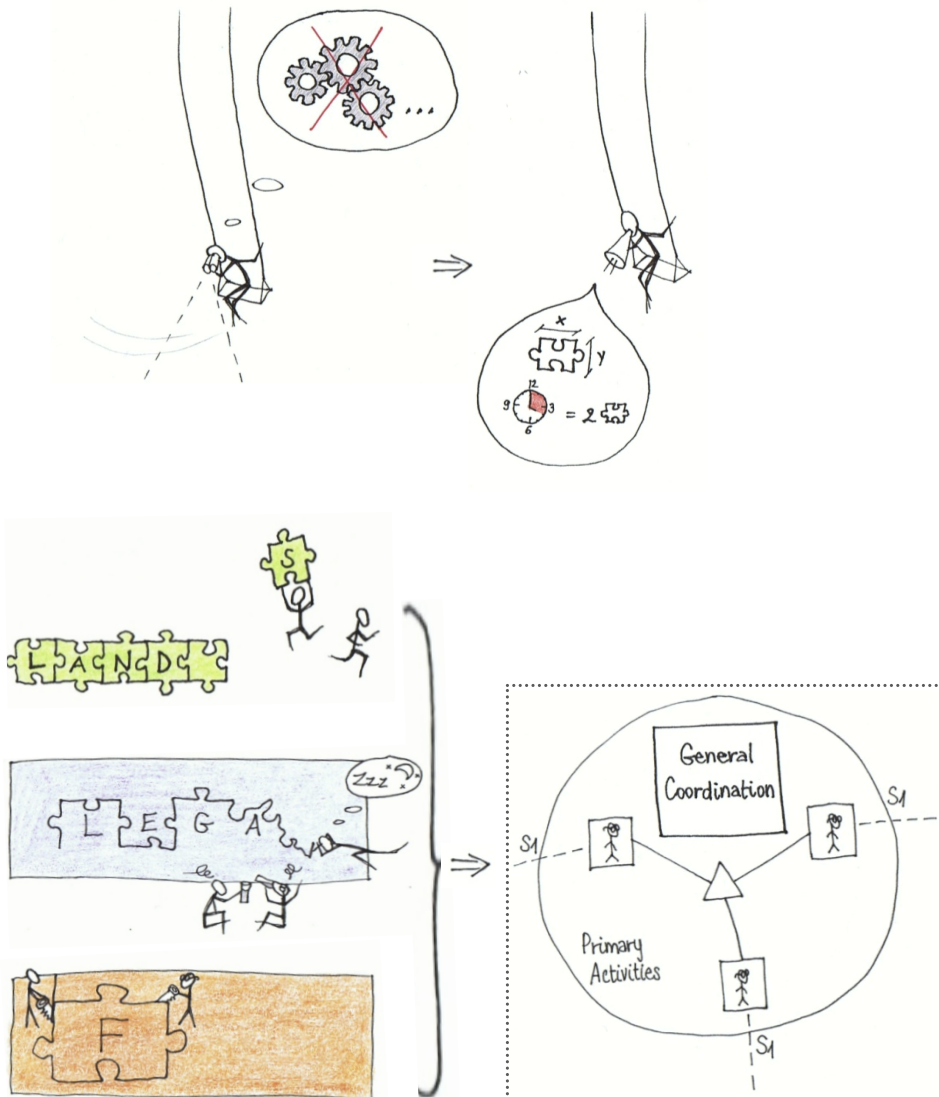 ...
x
y
12
9 3 = 2
6
S
LAND
Zzz
LEGA
F
General
Coordination
S1
S1
Primary
Activities
S1